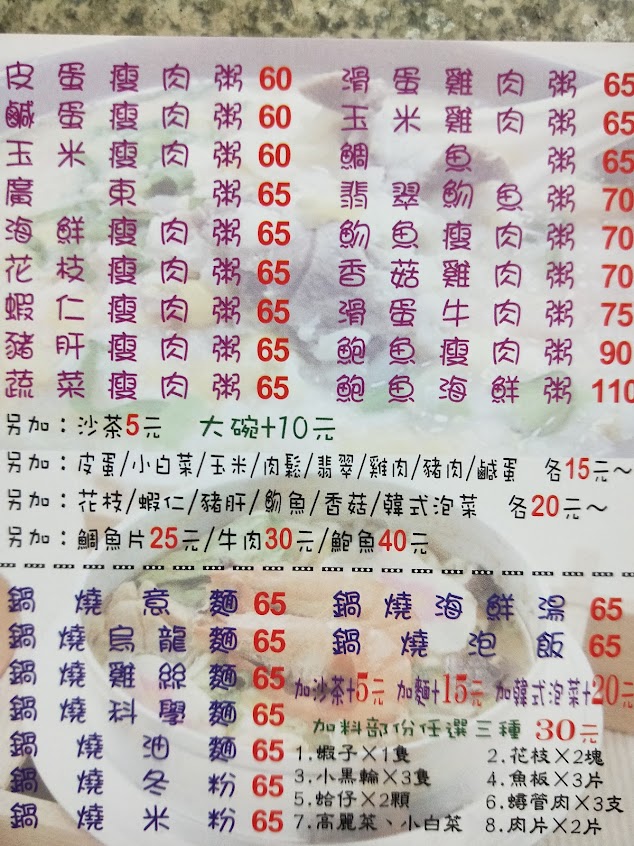 皮蛋瘦肉粥 60
鹹蛋瘦肉粥 60
玉米瘦肉粥 60
廣東粥 65
海鮮瘦肉粥 65
花枝瘦肉粥 65
蝦仁瘦肉粥 65
豬肝瘦肉粥 65
蔬菜瘦肉粥 65
滑蛋雞肉粥 65
玉米雞肉粥 65
鯛魚粥 65
翡翠魩魚粥 70
魩魚瘦肉粥 70
香菇雞肉粥 70
滑蛋牛肉粥 75
鮑魚瘦肉粥 90
鮑魚海鮮粥 110
另加：沙茶5元 大碗+10元
另加：皮蛋/小白菜/玉米/肉鬆/翡翠/雞肉/豬肉/鹹蛋 各15元～
另加：花枝/蝦仁/豬肝/魩魚/香菇/韓式泡菜 各20元～
另加：鯛魚片25元/牛肉30元/鮑魚40元
鍋燒意麵 65
鍋燒烏龍麵 65
鍋燒雞絲麵 65
鍋燒科學麵 65
鍋燒油麵 65
鍋燒冬粉 65
鍋燒米粉 65
鍋燒海鮮湯 65
鍋燒泡飯 65
加沙茶+5元 加麵+15元 加韓式泡菜+20元
加料部份任選三種 30元
1.蝦子×1隻 2.花枝×2塊
3.小黑輪×3隻 4.魚板×3片
5.蛤仔×2顆 6.蟳管肉×3支
7.高麗菜、小白菜 8.肉片×2片